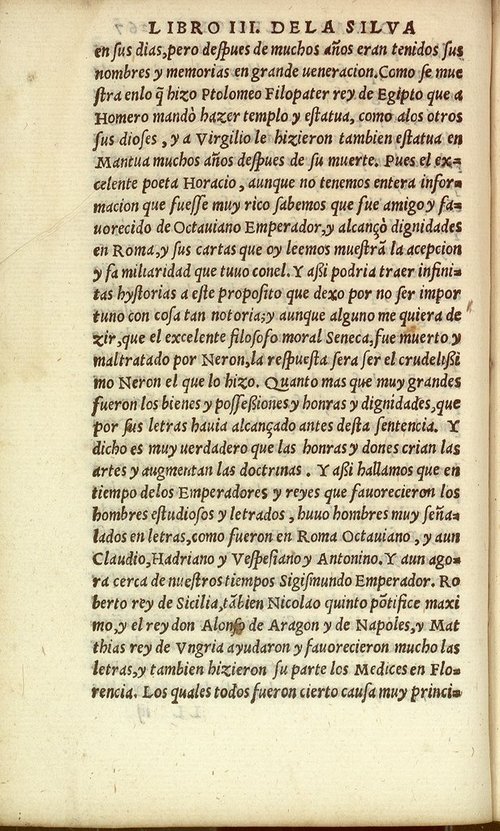 LIBRO III. DE LA SILVA
en ſus dias,pero deſpues de muchos años eran tenidos ſus
nombres y memorias en grande ueneracion.Como ſe mue
ſtra enlo q̃ hizo Ptolomeo Filopater rey de Egipto que a
Homero mandò hazer templo y eſtatua, como alos otros
ſus dioſes , y a Virgilio le hizieron tambien eſtatua en
Mantua muchos años deſpues de ſu muerte. Pues el ex=
celente poeta Horacio, aunque no tenemos entera infor=
macion que fueſſe muy rico ſabemos que fue amigo y fa=
uorecido de Octauiano Emperador,y alcançò dignidades
en Roma,y ſus cartas que oy leemos mueſtrã la acepcion
y fa miliaridad que tuuo conel. Y aßi podria traer infini=
tas hyſtorias a eſte propoſito que dexo por no ſer impor
tuno con coſa tan notoria;y aunque alguno me quiera de
zir,que el excelente filoſofo moral Seneca,fue muerto y
maltratado por Neron,la reſpueſta ſera ſer el crudelißi
mo Neron el que lo hizo. Quanto mas que muy grandes
fueron los bienes y poſſeßiones y honras y dignidades,que
por ſus letras hauia alcançado antes deſta ſentencia. Y
dicho es muy uerdadero que las honras y dones crian las
artes y augmentan las doctrinas . Y aßi hallamos que en
tiempo delos Emperadores y reyes que fauorecieron los
hombres eſtudioſos y letrados , huuo hombres muy ſeña=
lados en letras,como fueron en Roma Octauiano , y aun
Claudio,Hadriano y Veſpeſiano y Antonino. Y aun ago=
ra cerca de nueſtros tiempos Sigiſmundo Emperador. Ro
berto rey de Sicilia,tãbien Nicolao quinto põtifice maxi
mo,y el rey don Alonſo de Aragon y de Napoles,y Mat
thias rey de Vngria ayudaron y fauorecieron mucho las
letras,y tambien hizieron ſu parte los Medices en Flo=
rencia. Los quales todos fueron cierto cauſa muy princi=